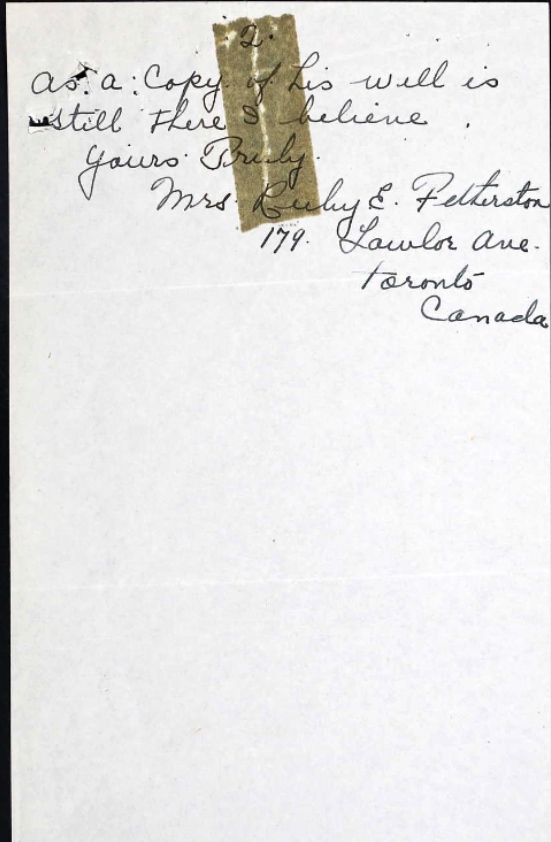 2.
as. a: Copy of his will is
still there I believe.
Yours Truly.
Mrs Ruby E. Fetherston
179. Lawlor Ave.
Toronto
Canada